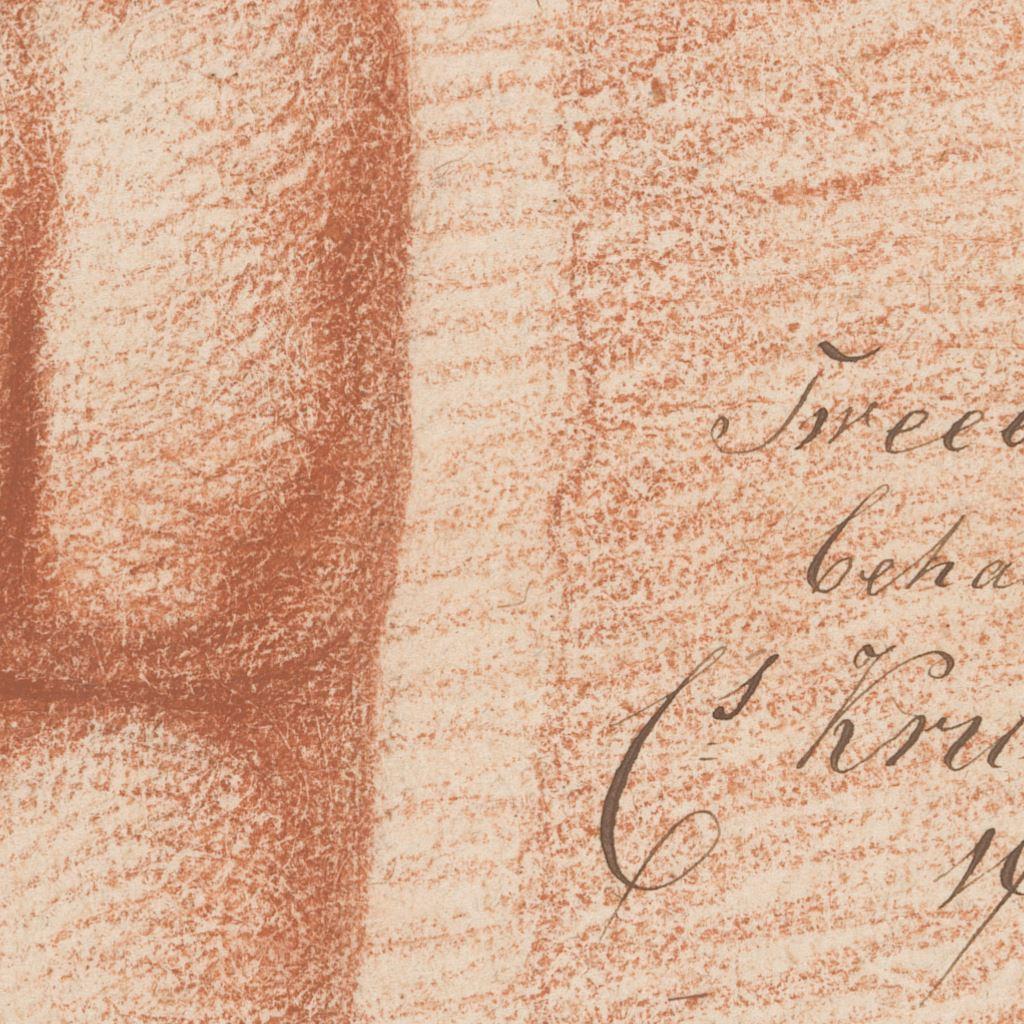 Twee
beha
Cs Kru